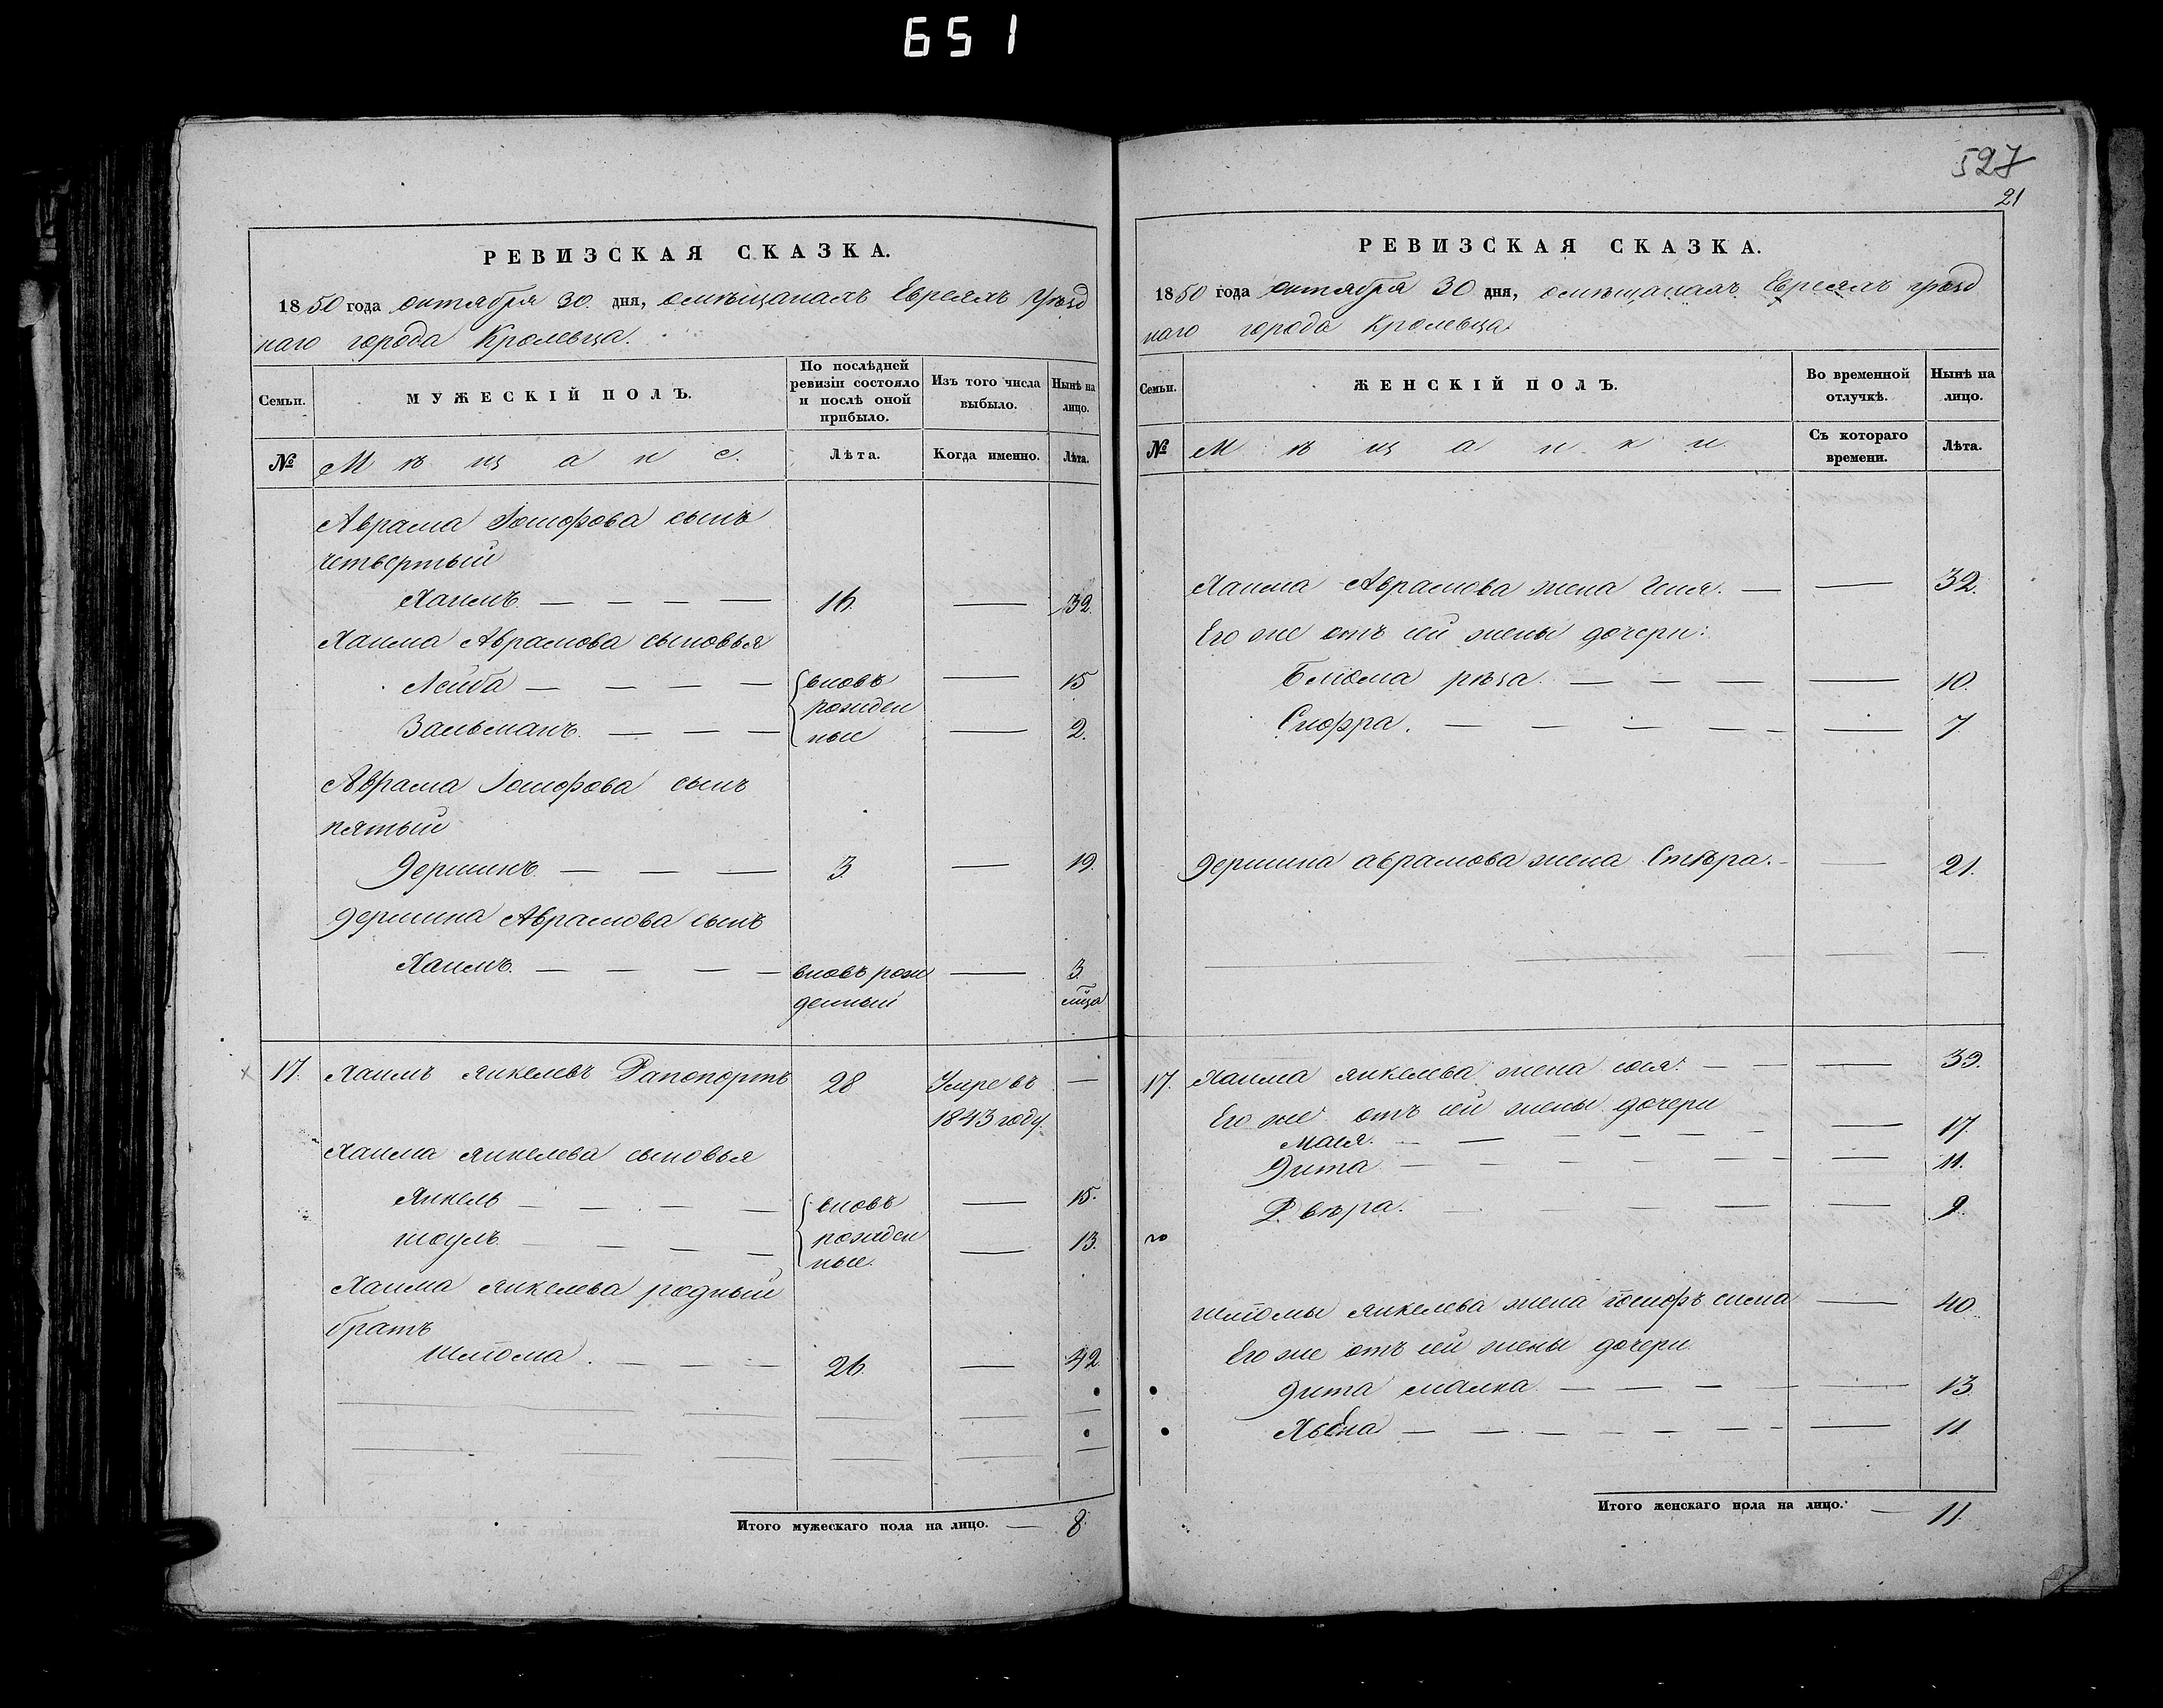 651
РЕВИЗСКАЯ СКАЗКА.
1850 года октября 30 дня, омѣщанахъ Евреяхъ уѣзд
наго города Кролевца.
Семьи.
МУЖЕСКІЙ ПОЛЪ.
По послѣдней ревизіи состояло и послѣ оной прибыло.
Изъ того числа выбыло.
Нынѣ на лицо.
№ Мѣщане. Лѣта. Когда именно. Лѣта.
Аврама Іошфова сынъ
четвертый
Хаимъ — — — — 16 — 32.
Хаима Абрамова сыновья
Лейба — — — — вновь — 15
рожден
Залъманъ. — — — ные — 2.
Аврама Іошфова сынъ
пятый
Гершикъ — — — 3 — 19.
Гершика Абрамова сынъ
Хаимъ. — — — — вновь рож — 3
денный мѣца
17. Хаимъ Янкелевъ Рапопортъ 28 Умре въ —
1843 году.
Хаима Янкелева сыновья
Янкель — — — — вновь — 15.
шоулъ — — — — рожден — 13.
ные.
Хаима Янкелева родный
братъ
Шліома. — — — 26. — 42
Итого мужескаго пола на лицо. — 8.
527
21
РЕВИЗСКАЯ СКАЗКА.
1850 года октября 30 дня, омѣщанахъ Евреяхъ уѣзд
наго города Кролевца.
Семьи.
ЖЕНСКІЙ ПОЛЪ.
Во временной отлучкѣ.
Нынѣ на лицо.
№ Мѣщанки. Съ котораго времени. Лѣта.
Хаима Абрамова жена — — 32.
Его же отъ сей жены дочери:
Блюма рѣза. — — — — 10.
Сиофра. — — — — — — 7
Гершика абрамова жена Стѣра. — — 21.
17. Хаима янкелева жена — — — 39.
Его же отъ сей жены дочери
Мася. — — — — — — — 17
Гита — — — — — — — 11.
Двѣра. — — — — 9.
шліомы янкелева жена — 40.
Его же отъ сей жены дочери
Гита малка — — — — — 13.
Хьена — — — — — — — 11
Итого женскаго пола на лицо. — 11.